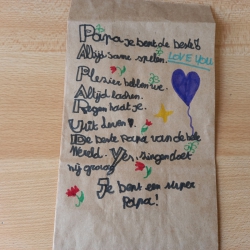 Papa je bent de beste!
Altijd same spelen. LOVE YOU
Plezier hebben we.
Altijd lachen.
Regen had je.
Uit deren!
De beste Papa van de hele
Wereld. Yes, zingen doet
hij graag
Je bent een super
Papa!